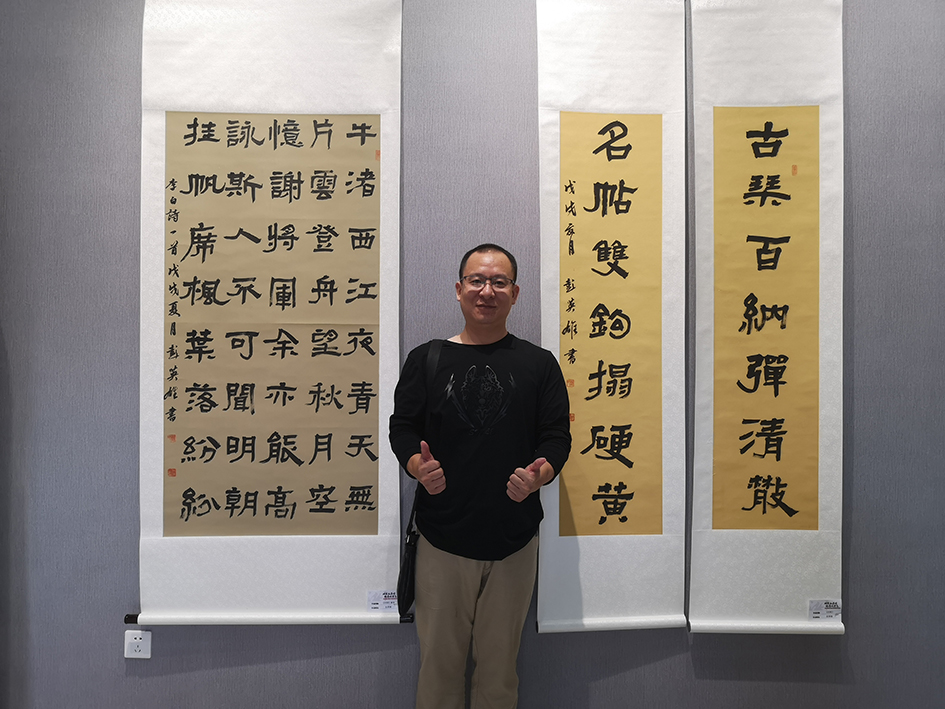 古琴百納彈清散
名帖雙鉤搨硬黄
戊戌夏月 彭英雄書
牛渚西江夜青天無
片雲登舟望秋月空
憶謝將軍余亦能高
詠斯人不可聞明朝
挂帆席楓葉落紛紛
李白詩一首戊戌夏月彭英雄書